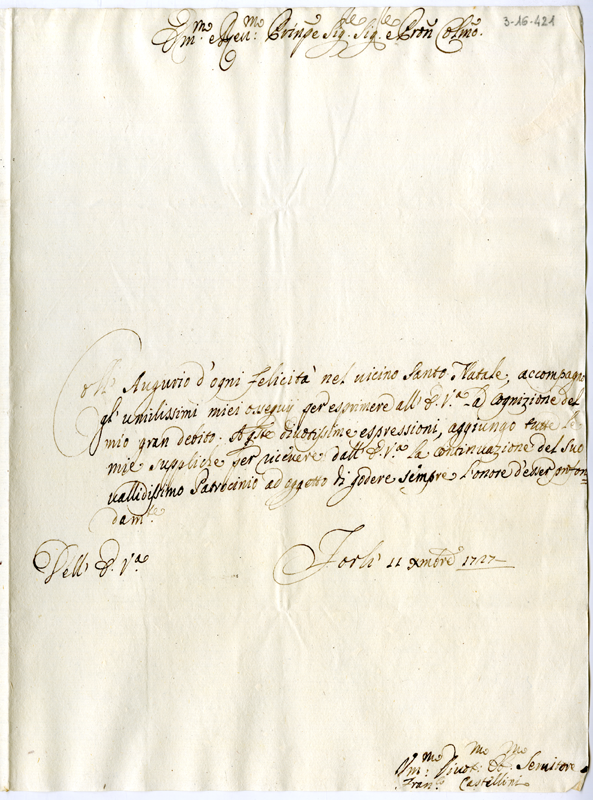 3-16-421
Em.mo e Rev.mo Prinpe Sig.e Sig.e e Pron Colmo.
Coll' Augurio d'ogni felicità nel vicino Santo Natale, accompagno
gl' umilissimi miei ossequij per esprimere all' E. V.a La Cognizione del
mio gran debito. A qste divotissime espressioni, aggiungo tutte le
mie suppliche per ricevere dall' E. V.a la continuazione del suo
vallidissimo Patrocinio ad oggetto di godere sempre l'onore d'esser profon
dam.te
Dell' E. V.a
Forlì 11 Xmbre 1727
Um.mo Divot.mo Ob.mo Servitore
Fran.co Castellini